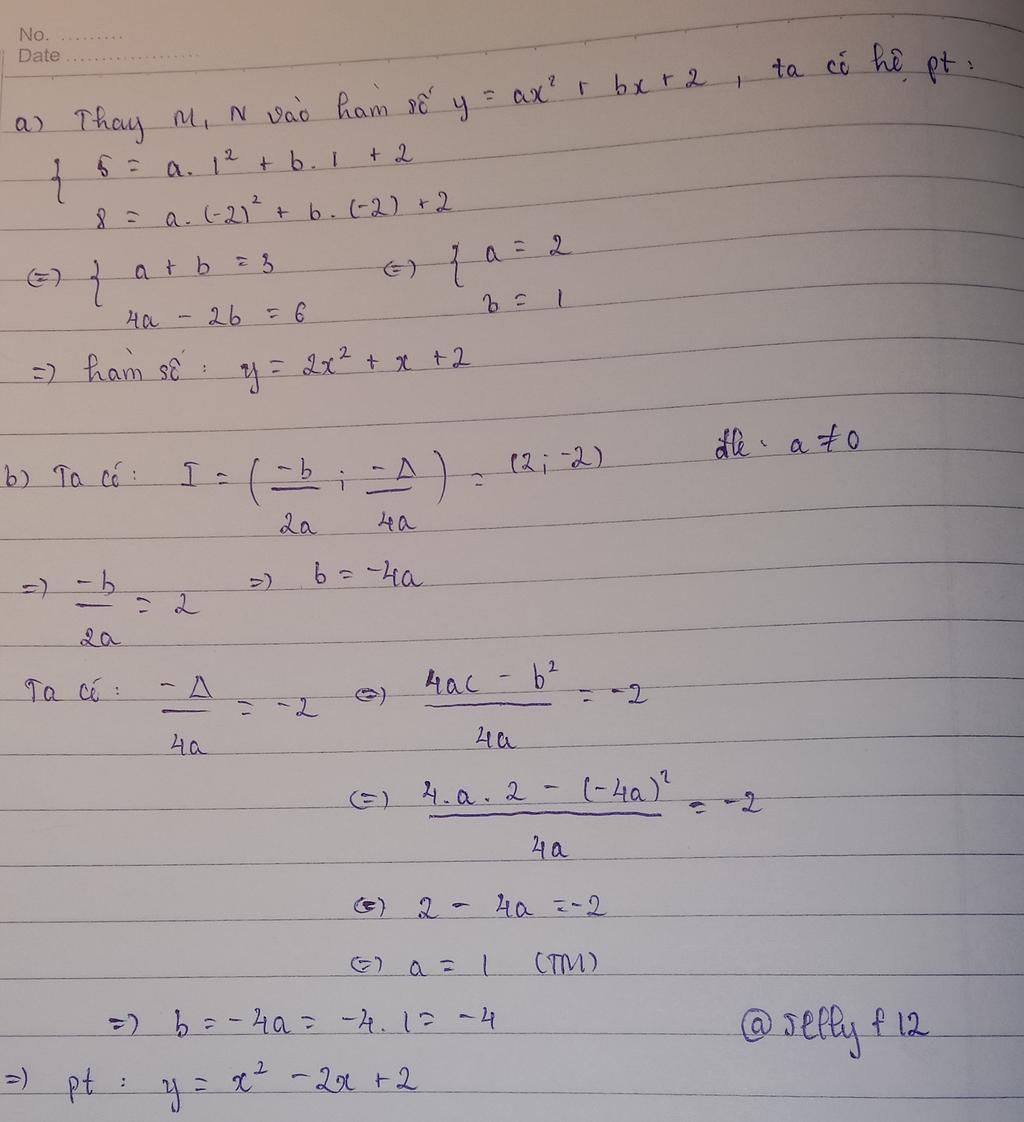 No. .........
Date ...................
a) Thay M, N vào hàm số y = ax² + bx + 2, ta có hệ pt:
{ 5 = a. 1² + b. 1 + 2
8 = a. (-2)² + b. (-2) + 2
(=) { a + b = 3 (=) { a = 2
4a - 2b = 6 b = 1
=) hàm số: y = 2x² + x + 2
b) Ta có: I = (-b/2a ; -Δ/4a) = (2; -2) đk: a ≠ 0
=) -b/2a = 2 =) b = -4a
Ta có: -Δ/4a = -2 (=) (4ac - b²)/4a = -2
(=) (4.a.2 - (-4a)²)/4a = -2
(=) 2 - 4a = -2
(=) a = 1 (TM)
=) b = -4a = -4.1 = -4 @selly f 12
=) pt: y = x² - 2x + 2